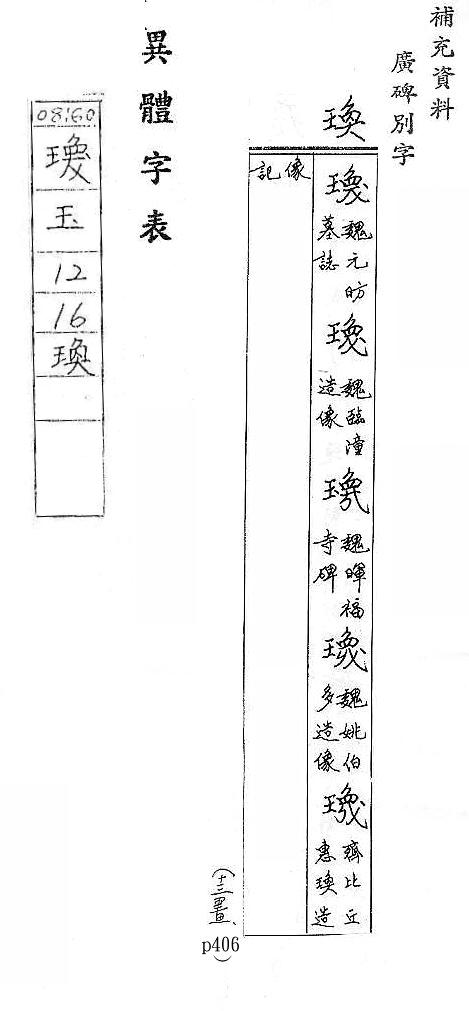 補充資料
廣碑別字
瑍
魏元昉
墓誌
魏臨潼
造像
魏暉福
寺碑
魏姚伯
多造像
齊比丘
惠瑍造
像記
(十三畫、
p406
)
異體字表
08160
玉
12
16
瑍